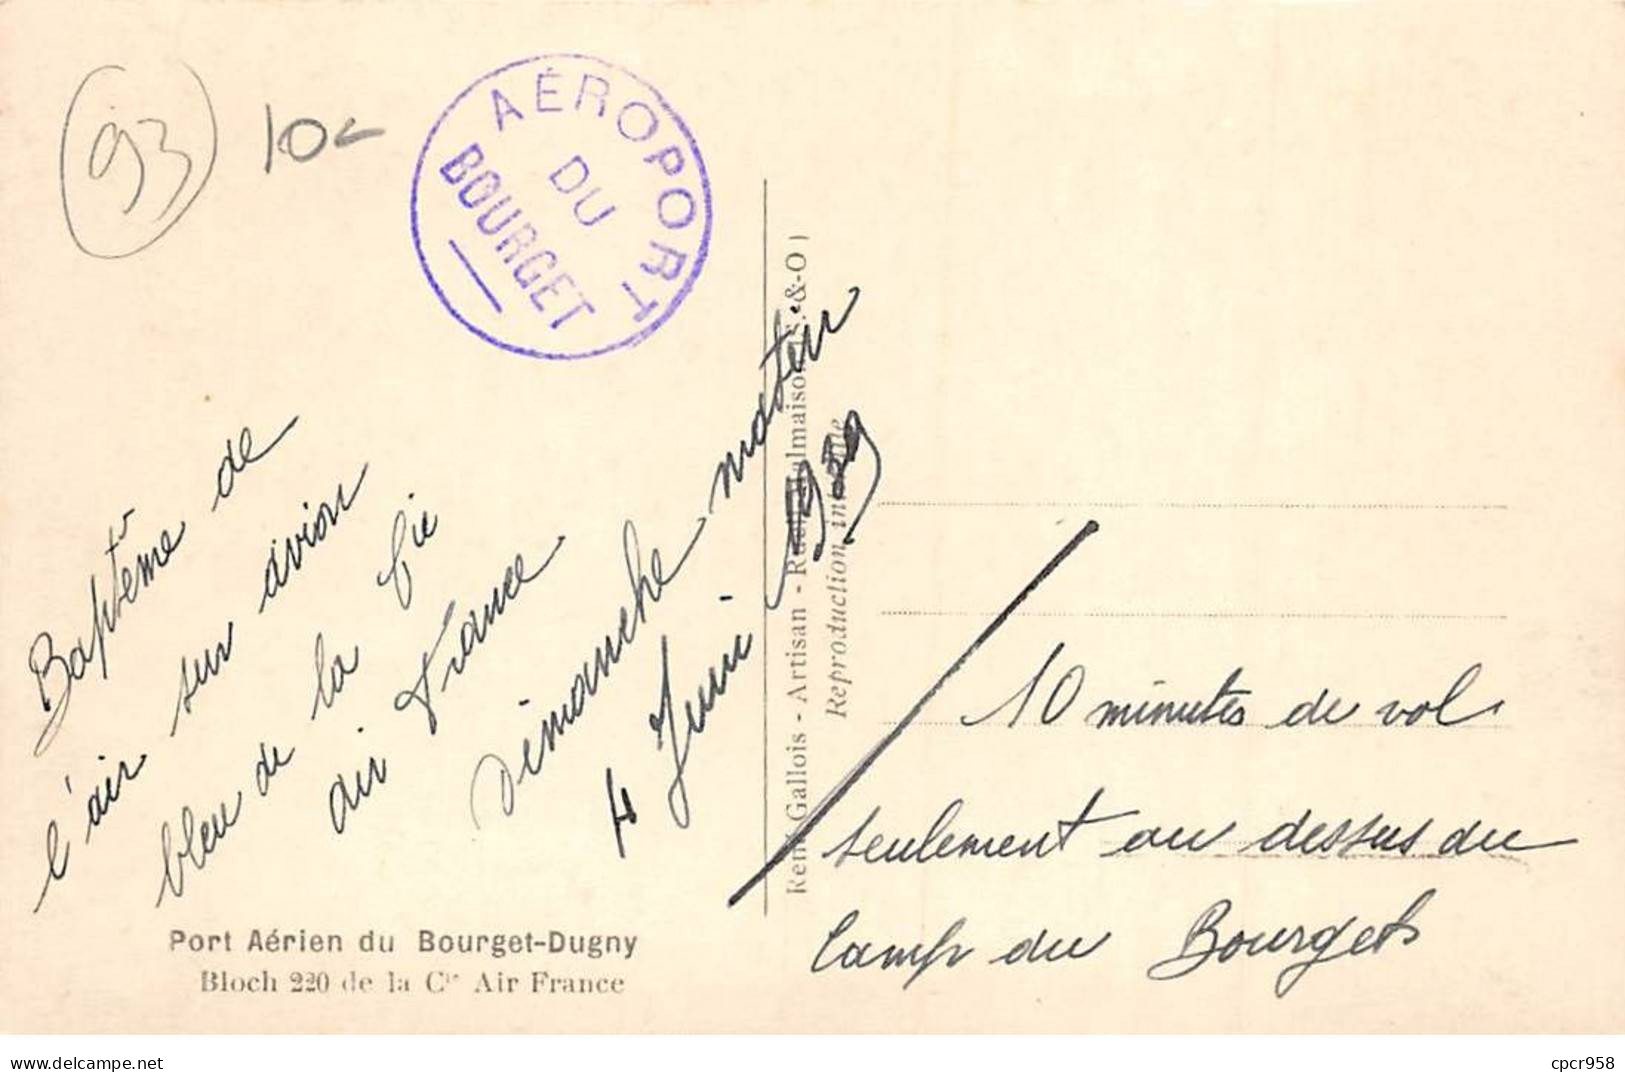 93
10
AÉROPORT
DU
BOURGET
Baptême de
l'air sur avion
bleu de la Cie
air France
Dimanche matin
4 Juin 1939
Port Aérien du Bourget-Dugny
Bloch 220 de la Cie Air France
René Gallois - Artisan - &-O)
Reproduction
10 minutes de vol
seulement au dessus du
Camp du Bourget
delcampe.net
cpcr958